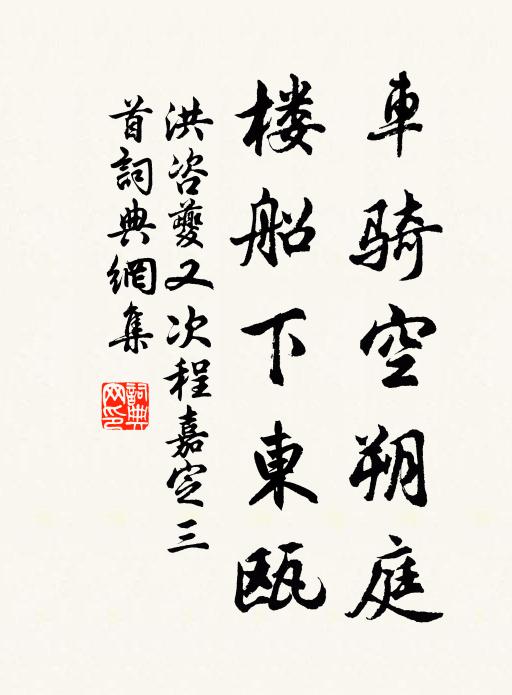 車骑空朔庭
楼船下東瓯
洪咨夔又次程嘉定三
首詞典網集
詞典
网印